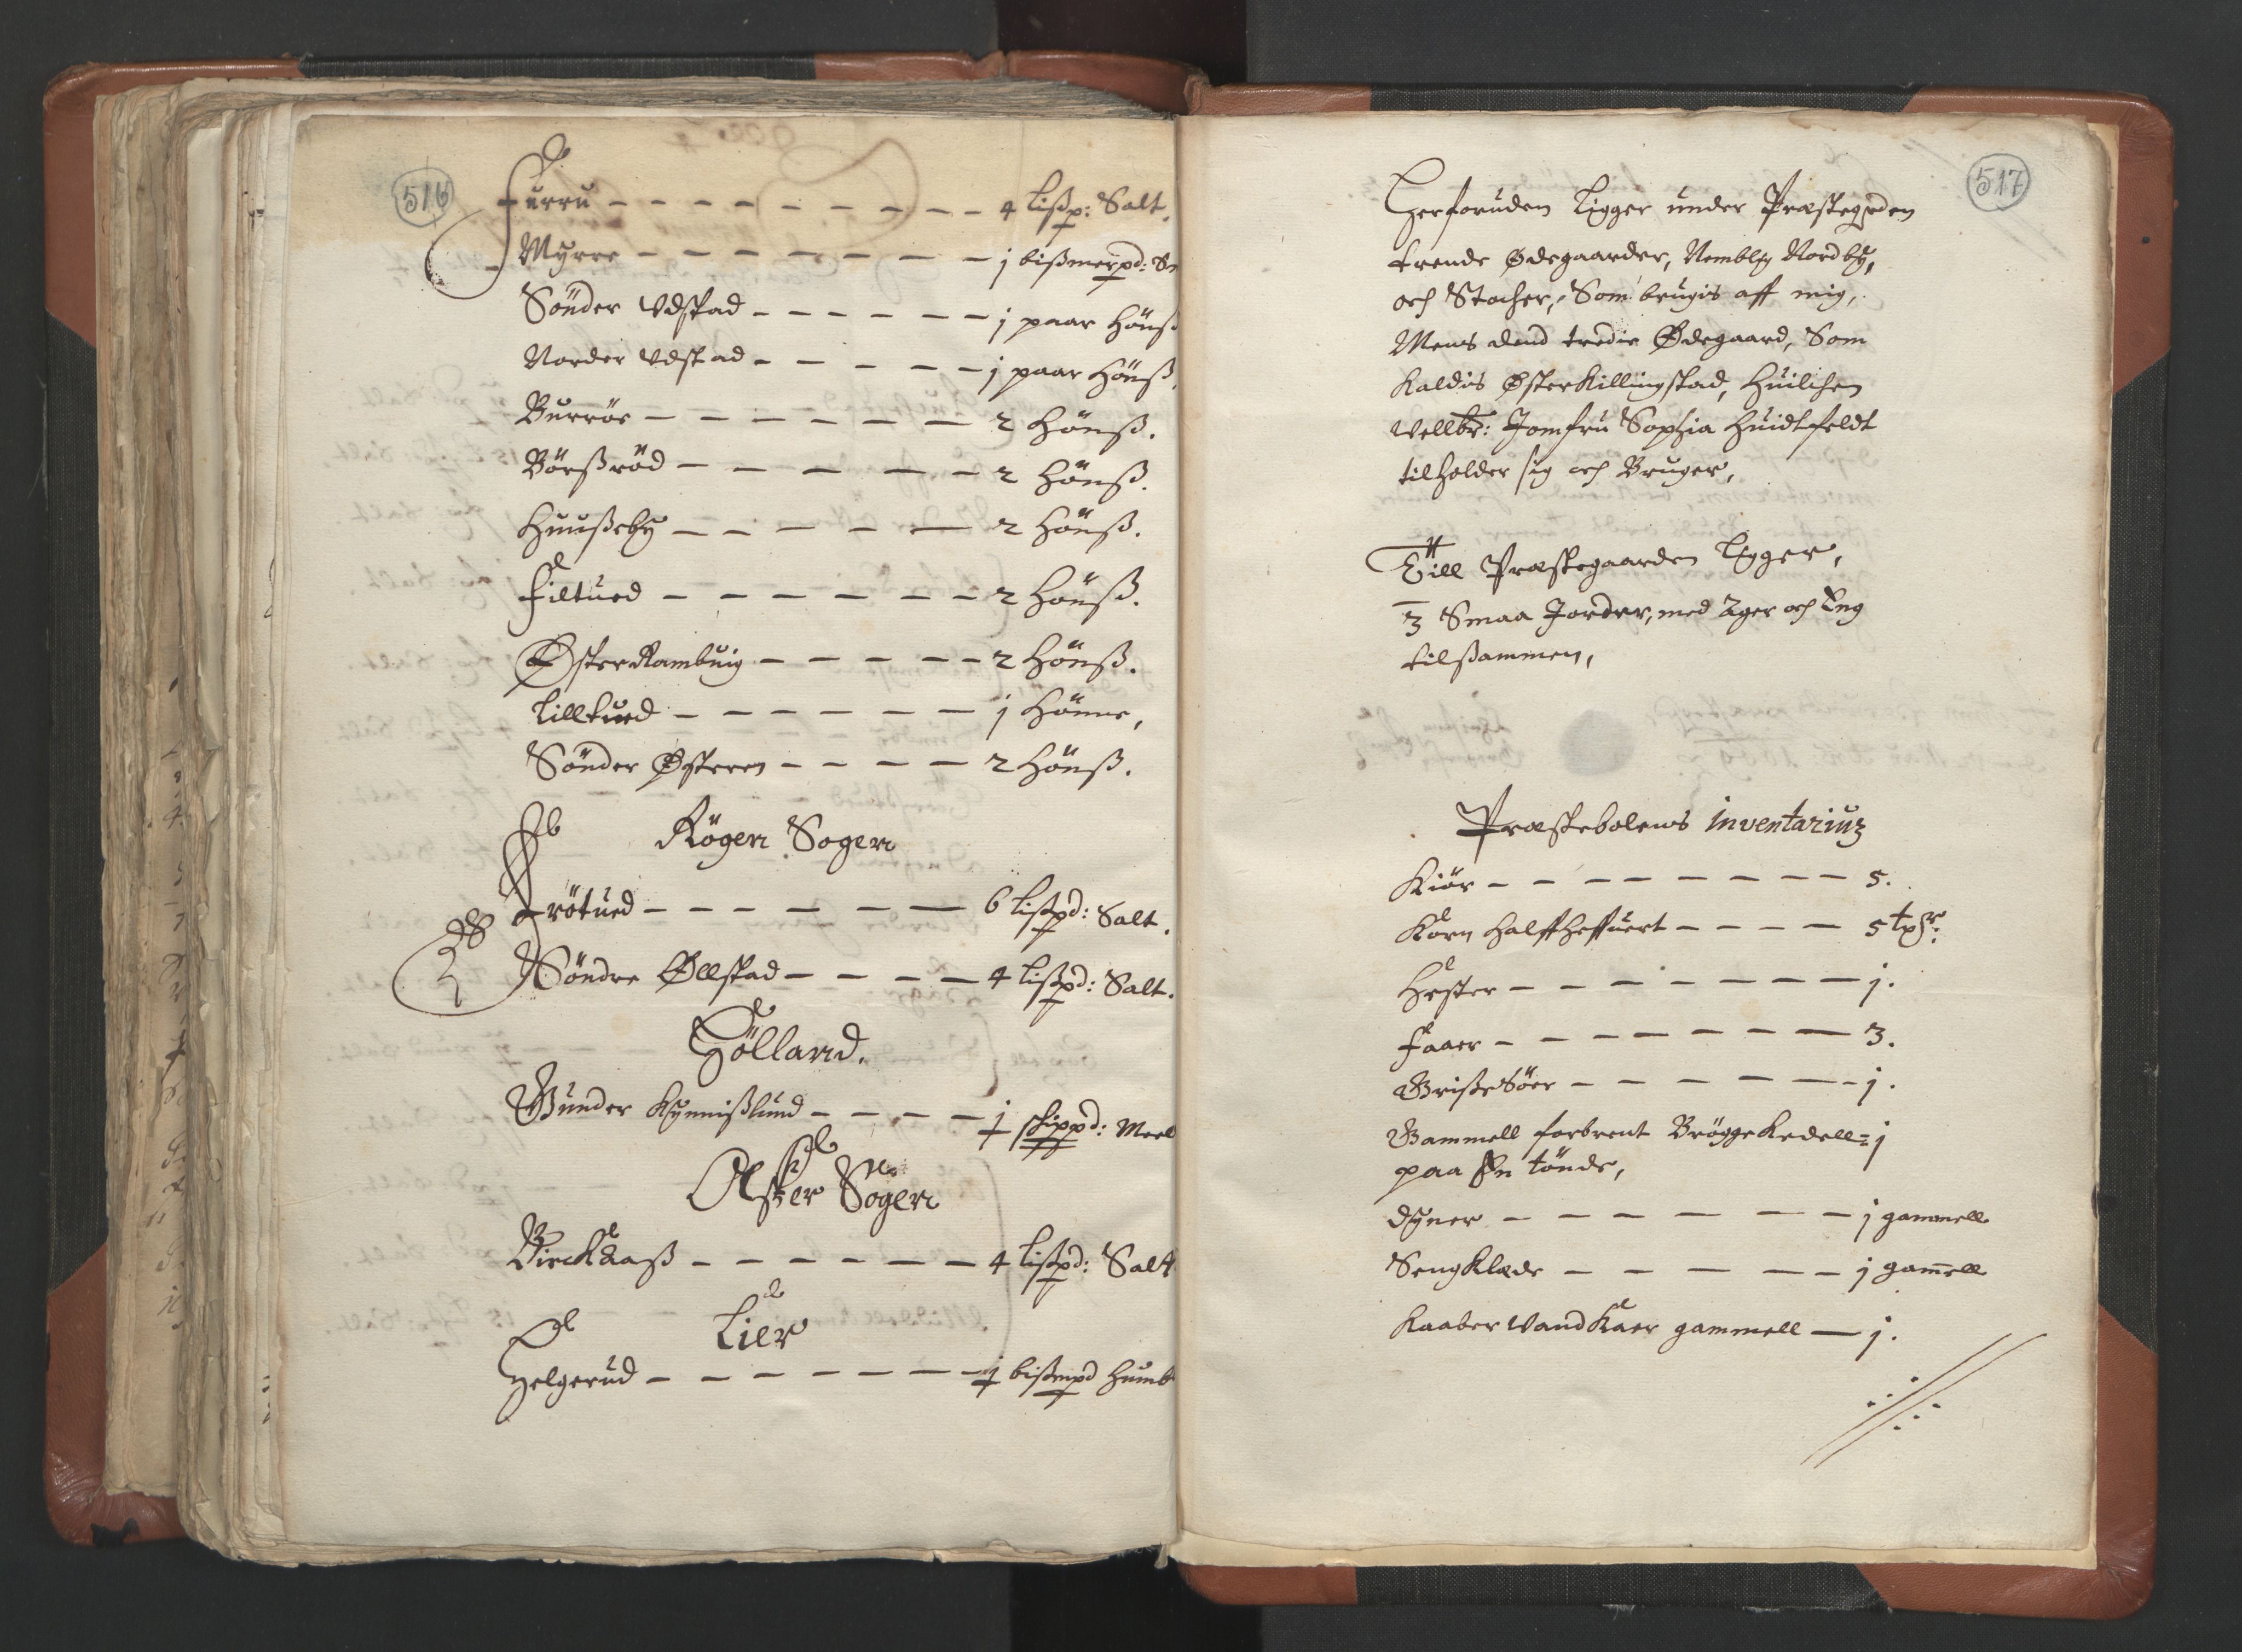 516
Furru - - - - - - - - - 4 Lißp: Salt.
Myrre - - - - - - - 1 bißmerpd: Sm
Sönder Vdstad - - - - - - 1 paar Hönß
Norder Vdstad - - - - - 1 paar Hönß.
Burröe - - - - - - 2 Hönß.
Börßröd - - - - - 2 Hönß.
Huußeby - - - - - 2 Hönß.
Filtued - - - - - - - 2 Hönß.
Øster Rambuig - - - - - 2 Hönß.
Lilltued - - - - - - 1 Hönne,
Sönder Østeren - - - - 2 Hönß.
Rögen Sogen
Frötued - - - - - - 6 Lißpd: Salt.
Söndre Øllstad - - - - 4 Lißpd: Salt.
Hölland.
Gunder Kynnißlund - - - - 1 skippd: Meel
Aßker Sogen
Birckaaß - - - - - - 4 Lißpd: Salt
Lier
Helgerud - - - - - - - 1 bißmpd Humb
517
Herforuden Ligger under Præstegrden
trende Ødegaarder, Nemblig Nordby,
och Stocher, Som brugis aff mig,
Mens dend tredie Ødegaard, Som
Kaldis Øster Killingstad, Huilchen
Wellbr: Jomfru Sophia Huidtfeldt
tilholder sig och Bruger,
Till Præstegaarden Ligger,
3 Smaa Jorder, med Ager och Eng
tilßammen,
Præstebolens inventarium
Kiör - - - - - - - - - 5.
Korn halffheffuert - - - - 5 tpr:
Hester - - - - - - - - 1.
Faaer - - - - - - - 3.
Grisse Söer - - - - - - 1.
Gammell forbrent Brögge Kedell = 1
paa En tönde,
dyner - - - - - - 1 gammell
Seng Klæde - - - - - 1 gammell
Kaaber Vand Kaer gammell - 1.